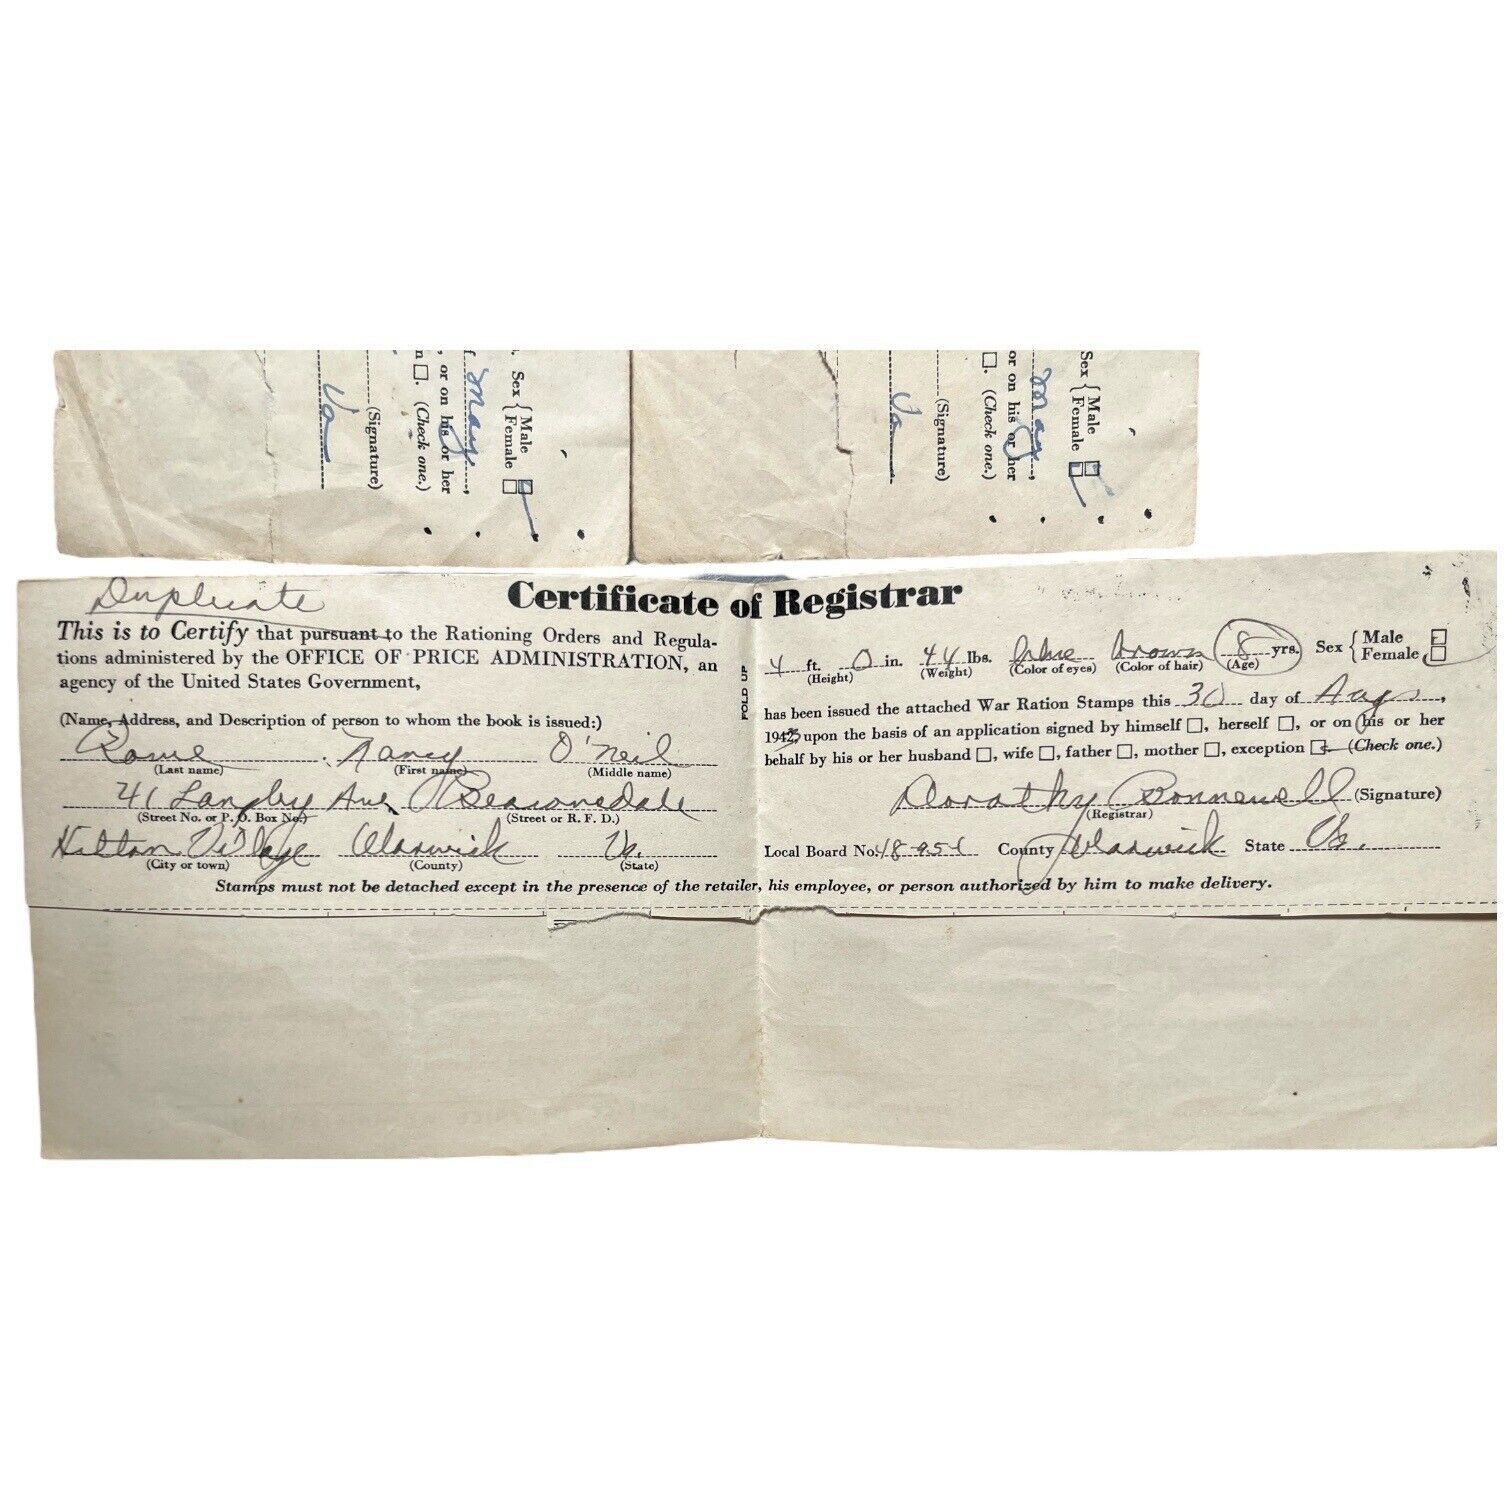 . Sex { Male
Female
f May,
, or on his or her
n ☐. (Check one.)
(Signature)
Va
Sex { Male
Female
May,
or on his or her
☐. (Check one.)
(Signature)
Va
Duplicate
Certificate of Registrar
This is to Certify that pursuant to the Rationing Orders and Regula-
tions administered by the OFFICE OF PRICE ADMINISTRATION, an
agency of the United States Government,
(Name, Address, and Description of person to whom the book is issued:)
Rowe Nancy O'Neil
(Last name) (First name) (Middle name)
41 Langley Ave,
(Street No. or P. O. Box No.) (Street or R. F. D.)
Hilton Village Warwick Va.
(City or town) (County) (State)
FOLD UP
4 ft. 0 in. 44 lbs. blue brown 8 yrs. Sex { Male
Female
(Height) (Weight) (Color of eyes) (Color of hair) (Age)
has been issued the attached War Ration Stamps this 30 day of Aug,
1943, upon the basis of an application signed by himself ☐, herself ☐, or on his or her
behalf by his or her husband ☐, wife ☐, father ☐, mother ☐, exception ☐ (Check one.)
Dorothy Bonnewell (Signature)
(Registrar)
Local Board No. 18-95-1 County Warwick State Va.
Stamps must not be detached except in the presence of the retailer, his employee, or person authorized by him to make delivery.